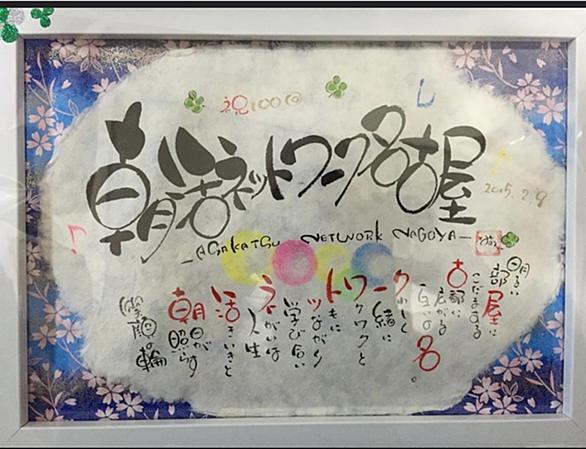 祝100回
朝活ネットワーク名古屋
2015.2.9
-ASAKATSU NETWORK NAGOYA-
明るい
部屋に
こだまする
古都に
広がる
名。
ー緒に
ワクワクと
トもに
ツながり
学び合い
ネがいは
人生
活きいきと
朝日が
照らす
笑顔の輪